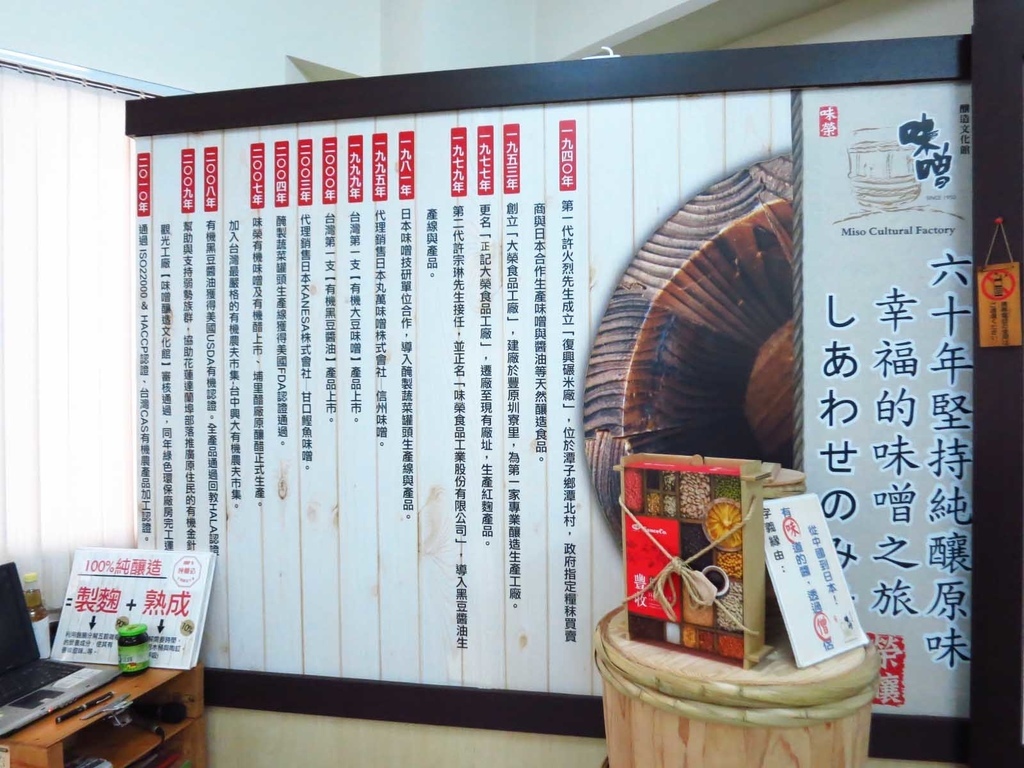 味榮
釀造文化館
味噌
SINCE 1950
Miso Cultural Factory
六十年堅持純釀原味
幸福的味噌之旅
しあわせのみ
榮釀
一九四〇年
第一代許火烈先生成立「復興碾米廠」,位於潭子鄉潭北村,政府指定糧秣買賣
商與日本合作生產味噌與醬油等天然釀造食品。
一九五三年
創立「大榮食品工廠」,建廠於豐原圳寮里,為第一家專業釀造生產工廠。
一九七七年
更名「正記大榮食品工廠」,遷廠至現有廠址,生產紅麴產品。
一九七九年
第二代許宗琳先生接任,並正名「味榮食品工業股份有限公司」,導入黑豆醬油生
產線與產品。
一九八一年
日本味噌技研單位合作,導入醃製蔬菜罐頭生產線與產品。
一九九五年
代理銷售日本丸萬味噌株式會社—信州味噌。
一九九九年
台灣第一支【有機大豆味噌】產品上市。
二〇〇〇年
台灣第一支【有機黑豆醬油】產品上市。
二〇〇三年
代理銷售日本KANESA株式會社—甘口鰹魚味噌。
二〇〇四年
醃製蔬菜罐頭生產線獲得美國FDA認證通過。
二〇〇七年
味榮有機味噌及有機醋上市、埔里醋廠原釀醋正式生產。
加入台灣最嚴格的有機農夫市集-台中興大有機農夫市集。
二〇〇八年
有機黑豆醬油獲得美國USDA有機認證。全產品通過回教HALA認證
二〇〇九年
幫助與支持弱勢族群,協助花蓮達蘭埠部落推廣原住民的有機金針
觀光工廠【味噌釀造文化館】審核通過,同年綠色環保廠房完工運
二〇一〇年
通過 ISO22000 & HACCP認證、台灣CAS有機農產品加工認證。
豐收
從中國到日本!
有味道的醬,透過僧侶
字義緣由:
100%純釀造
=製麴+熟成